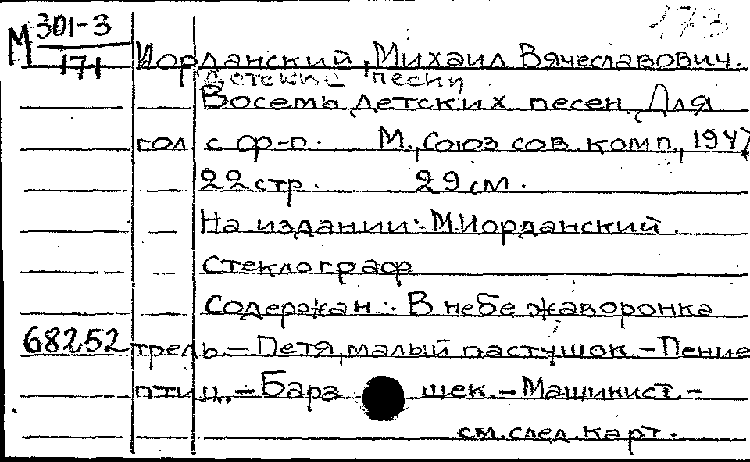 М 301-3 173
171 Иорданский, Михаил Вячеславович.
Детские песни
Восемь детских песен. Для
гол. с ф-п. М., Союз сов. комп., 1947
22 стр. 29 см.
На издании: М. Иорданский.
Стеклограф
Содержан.: В небе жаворонка
68252 трель. – Петя, малый пастушок. – Пение
птиц. – Бара шек. – Машинист. –
см. след. карт.